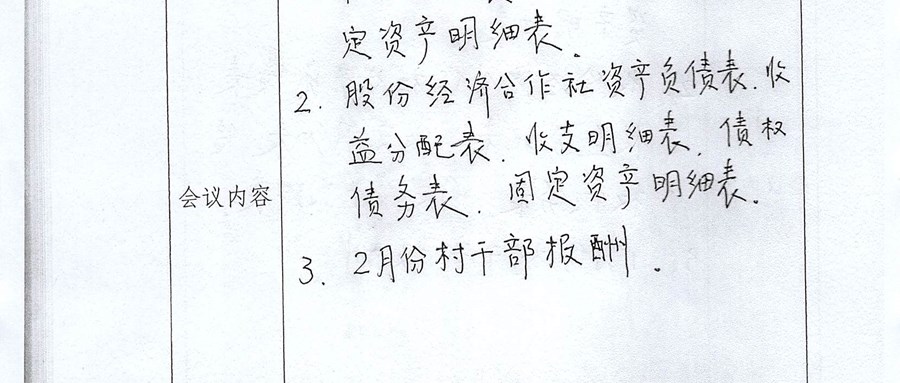 定资产明细表.
2. 股份经济合作社资产负债表.收
益分配表.收支明细表.债权
债务表.固定资产明细表.
会议内容
3. 2月份村干部报酬.